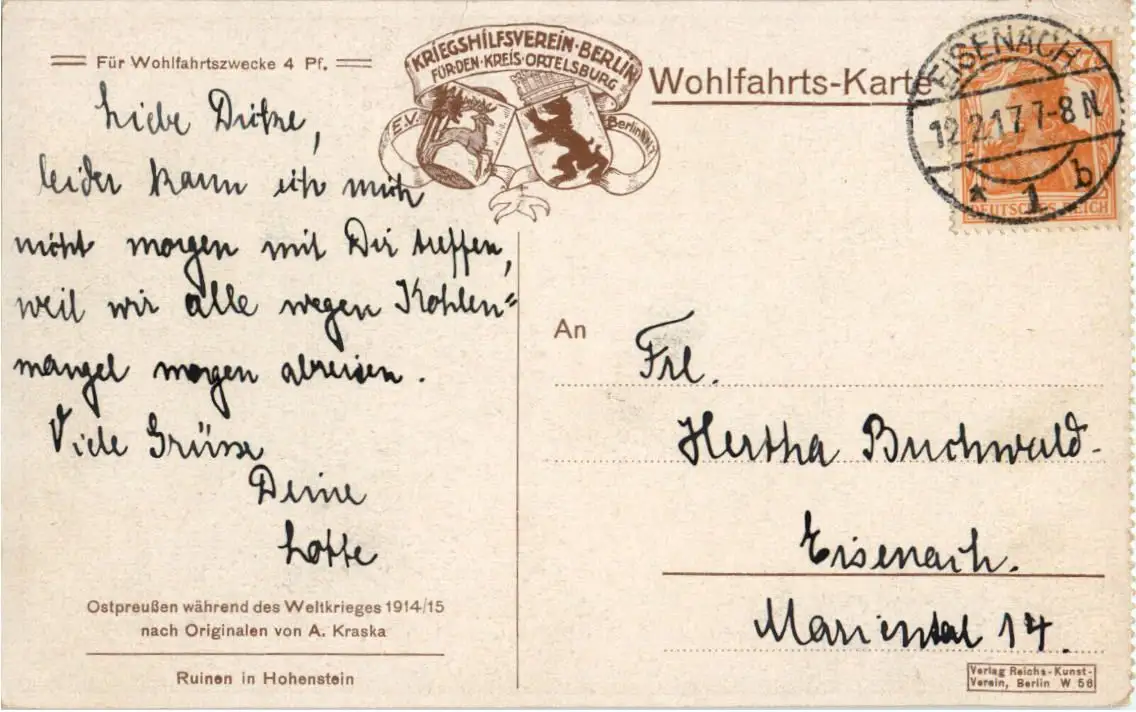 Für Wohlfahrtszwecke 4 Pf.
KRIEGSHILFSVEREIN·BERLIN
FÜR·DEN·KREIS·ORTELSBURG
E.V.
Wohlfahrts-Karte
EISENACH
12.2.17 7-8 N
* 1 b
DEUTSCHES REICH
Liebe Dicke,
leider kann ich mich
nicht morgen mit Dir treffen,
weil wir alle wegen Kohlen=
mangel morgen abreisen.
Viele Grüsse
Deine
Lotte
An
Frl.
Hertha Buchwald
Eisenach.
Mariental 14.
Ostpreußen während des Weltkrieges 1914/15
nach Originalen von A. Kraska
Ruinen in Hohenstein
Verlag Reichs-Kunst-
Verein, Berlin W 56